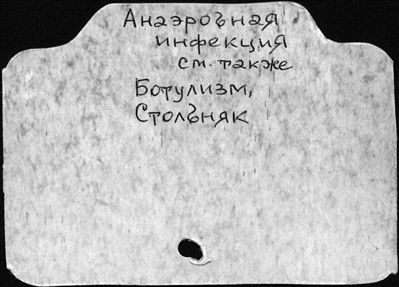 Анаэробная
инфекция
см. также
Ботулизм,
Столбняк